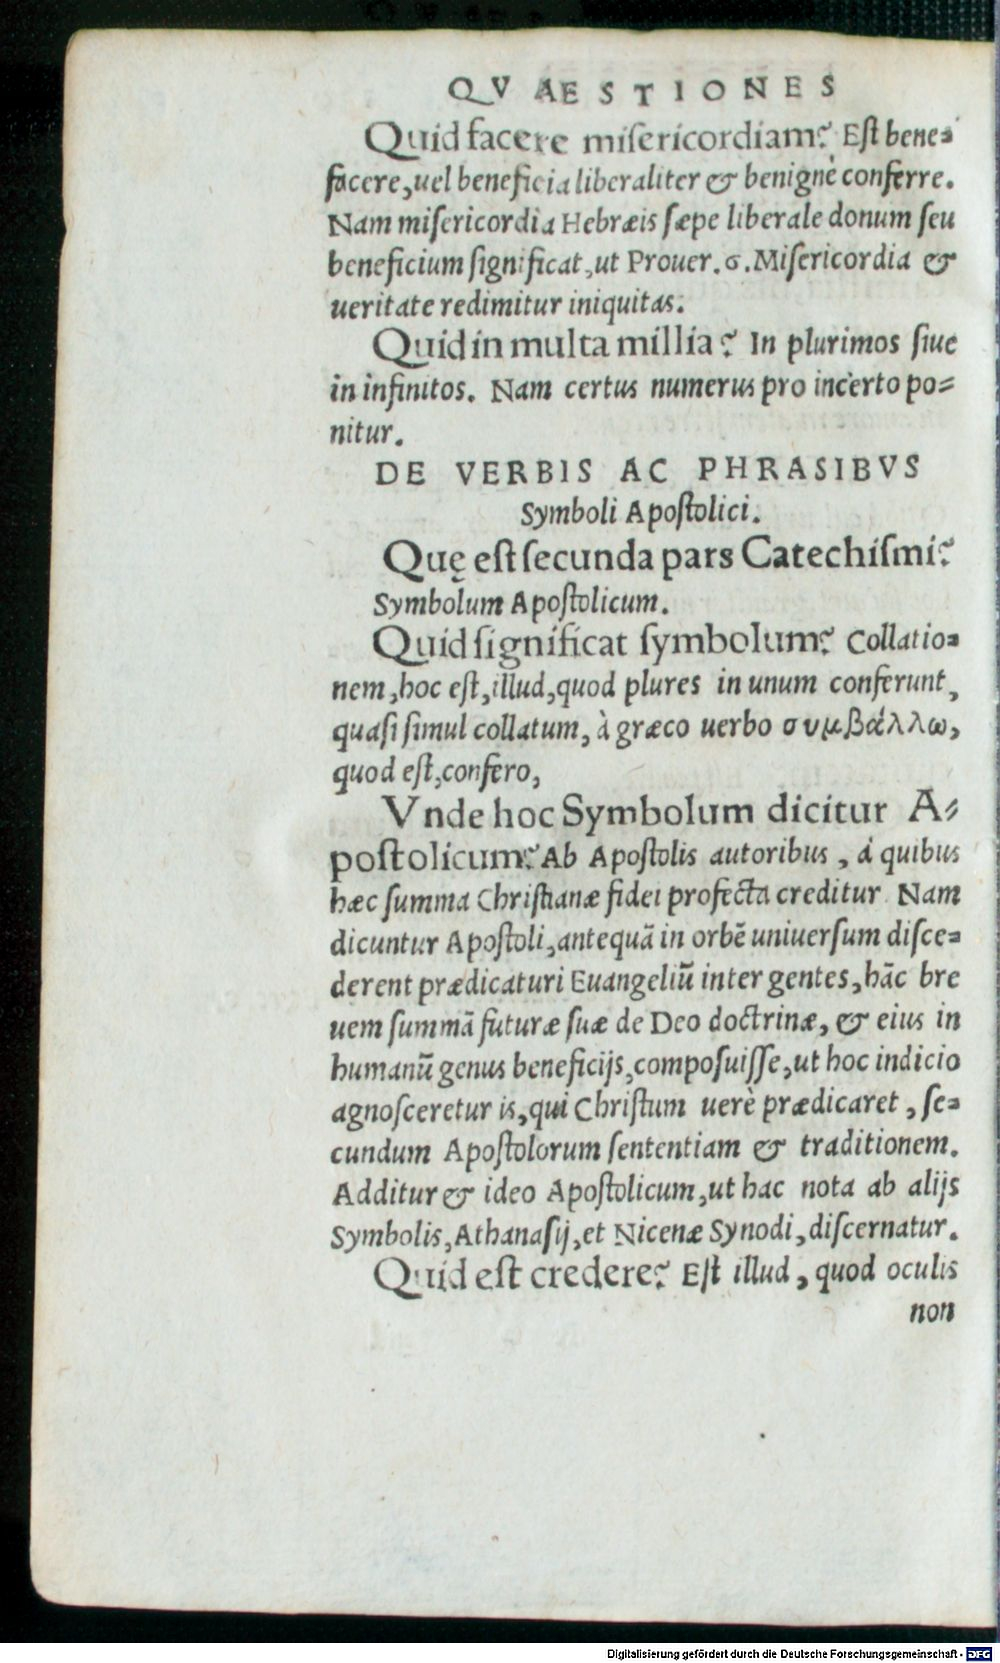 QVAESTIONES
Quid facere misericordiam? Est bene=
facere, uel beneficia liberaliter & benignè conferre.
Nam misericordia Hebræis sæpe liberale donum seu
beneficium significat, ut Prouer. 6. Misericordia &
ueritate redimitur iniquitas.
Quid in multa millia? In plurimos siue
in infinitos. Nam certus numerus pro incerto po=
nitur.
DE VERBIS AC PHRASIBVS
Symboli Apostolici.
Quę est secunda pars Catechismi?
Symbolum Apostolicum.
Quid significat symbolum? Collatio=
nem, hoc est, illud, quod plures in unum conferunt,
quasi simul collatum, à græco uerbo συμβάλλω,
quod est, confero,
Vnde hoc Symbolum dicitur A=
postolicum? Ab Apostolis autoribus, à quibus
hæc summa Christianæ fidei profecta creditur. Nam
dicuntur Apostoli, antequã in orbẽ uniuersum disce=
derent prædicaturi Euangeliũ inter gentes, hãc bre
uem summã futuræ suæ de Deo doctrinæ, & eius in
humanũ genus beneficijs, composuisse, ut hoc indicio
agnosceretur is, qui Christum uerè prædicaret, se=
cundum Apostolorum sententiam & traditionem.
Additur & ideo Apostolicum, ut hac nota ab alijs
Symbolis, Athanasij, et Nicenæ Synodi, discernatur.
Quid est credere? Est illud, quod oculis
non
Digitalisierung gefördert durch die Deutsche Forschungsgemeinschaft - DFG